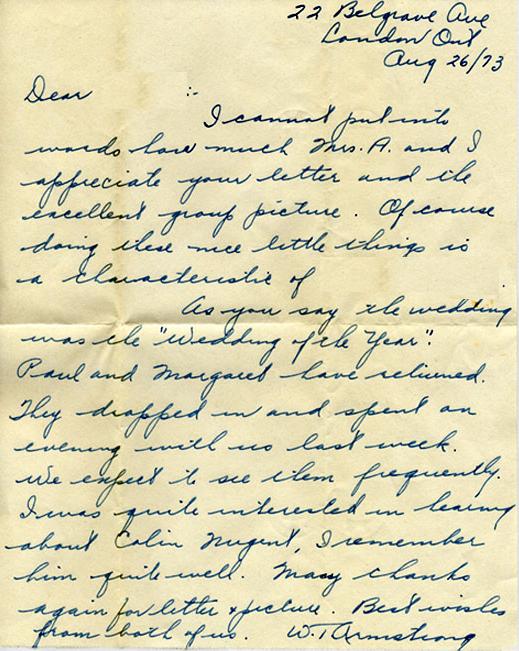 22 Belgrave Ave
London Ont
Aug 26/73
Dear :-
I cannot put into
words how much Mrs. A. and I
appreciate your letter and the
excellent group picture. Of course
doing these nice little things is
a characteristic of
As you say the wedding
was the "Wedding of the Year".
Paul and Margaret have returned.
They dropped in and spent an
evening with us last week.
We expect to see them frequently.
I was quite interested in hearing
about Colin Nugent, I remember
him quite well. Many thanks
again for letter & picture. Best wishes
from both of us. W.T. Armstrong